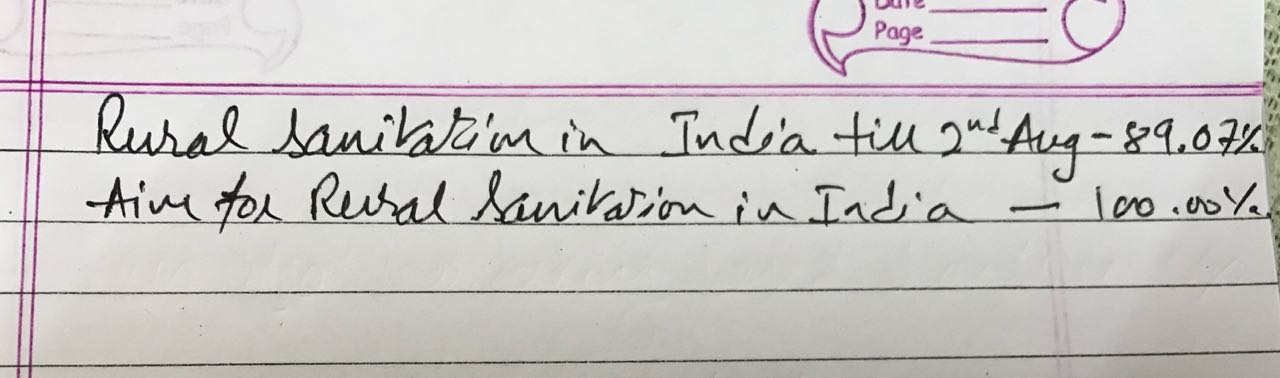 Date
Page
Rural Sanitation in India till 2nd Aug - 89.07%
Aim for Rural Sanitation in India - 100.00%